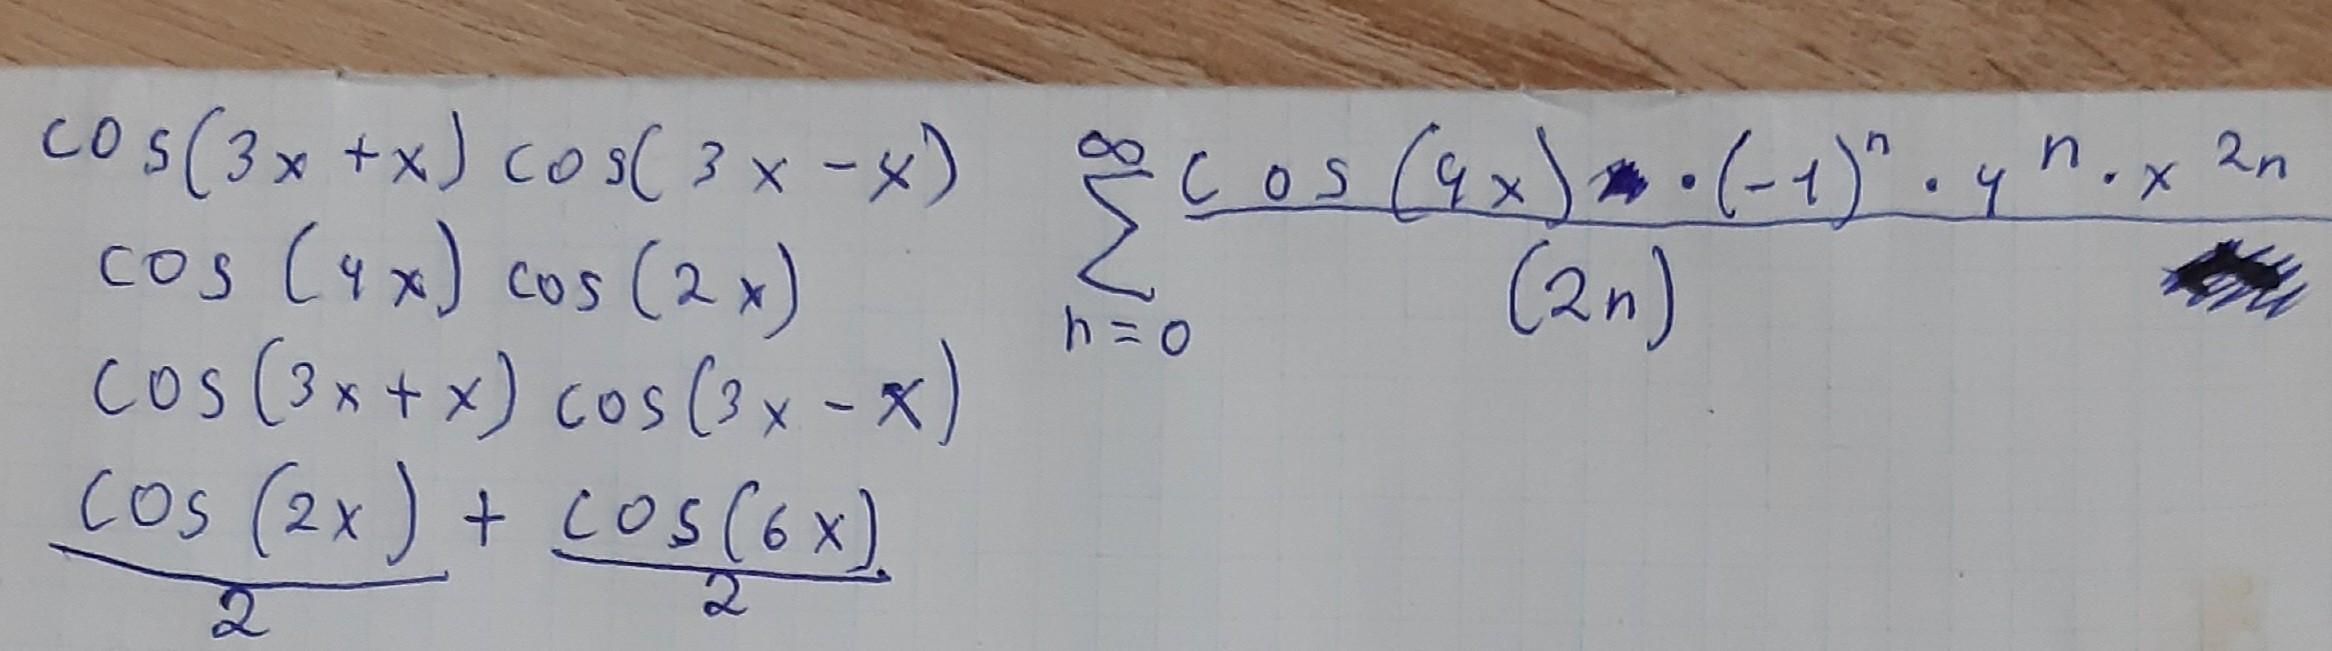 cos(3x+x) cos(3x-x)
cos(4x) cos(2x)
cos(3x+x) cos(3x-x)
cos(2x)/2 + cos(6x)/2
∞
∑ cos(4x) · (-1)^n · 4^n · x^2n / (2n)
n=0